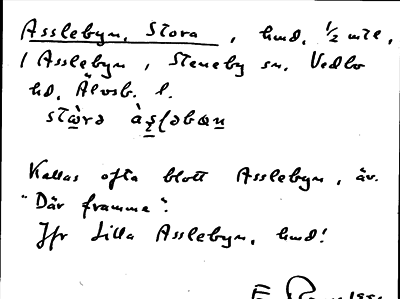 Asslebyn, Stora, hmd. 1/2 mtl,
i Asslebyn, Steneby sn. Vedbo
hd. Älvsb. l.
Kallas ofta blott Asslebyn, äv.
"Där framme".
Jfr Lilla Asslebyn, hmd!